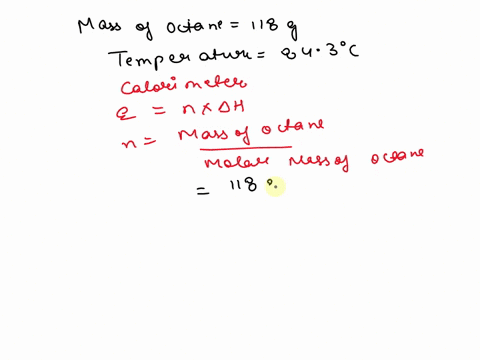 Mass of octane = 118 g
Temperature = 84.3°C
Calorimeter
q = n × ΔH
n = Mass of octane
Molar Mass of octane
= 118 g